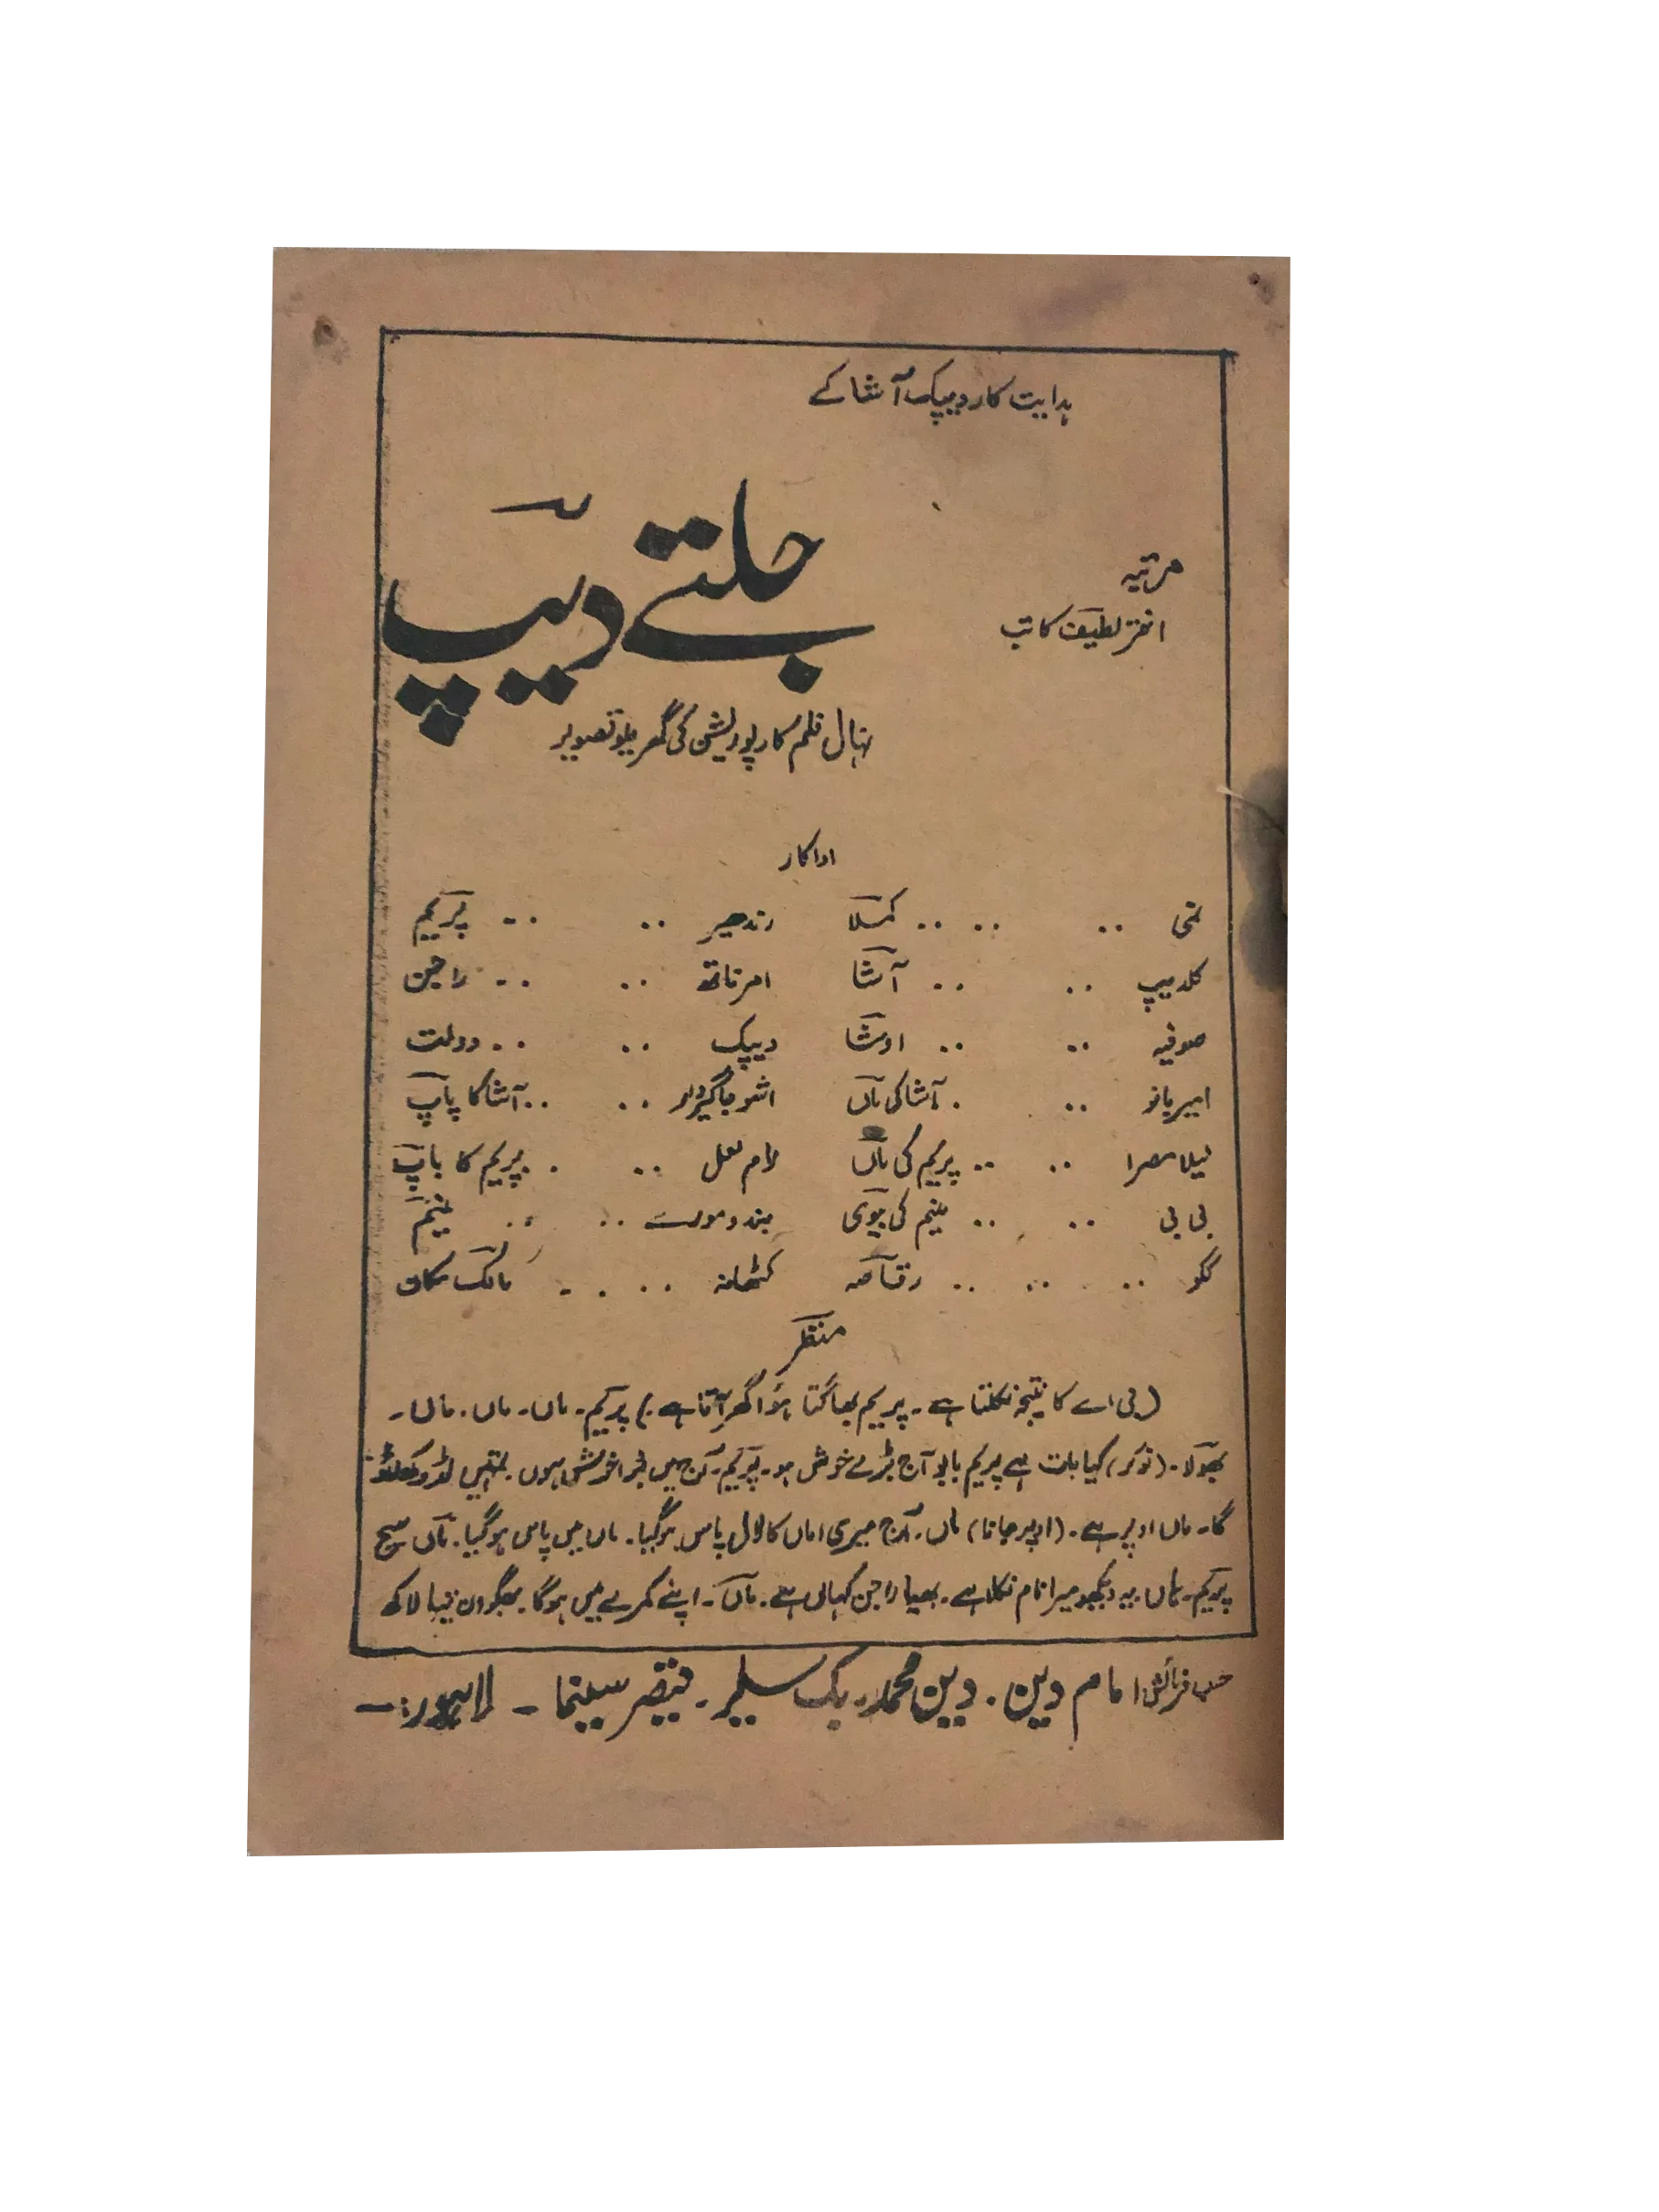 ہدایت کار دیپک آشا کے
جلتے دیپ
مرتبہ
اختر لطیف کاتب
نہال فلم کارپوریشن کی گھریلو تصویر
اداکار
نمی .. .. .. کملا رندھیر .. .. پریم
کلدیپ .. .. آشا امرناتھ .. .. راجن
صوفیہ .. .. اوشا دیپک .. .. دولت
امیر بانو .. . آشا کی ماں اشو جاگیردار .. .. آشا کا باپ
لیلا مصرا .. .. پریم کی ماں رام لعل .. . پریم کا باپ
بی بی .. .. منیم کی بیوی .. .. منیم
ککو .. .. .. رقاصہ .. . . - مالک مکان
منظر
(بی اے کا نتیجہ نکلتا ہے۔ پریم بھاگتا ہؤا گھر آتا ہے۔) پریم۔ ماں۔ ماں۔ ماں۔
بھولا۔ (نوکر) کیا بات ہے پریم بابو آج بڑے خوش ہو۔ پریم۔ آج میں بڑا خوش ہوں۔ تمہیں لڈو کھلاؤ
گا۔ ماں اوپر ہے۔ (اوپر جانا) ماں۔ آج میری اماں کا لال پاس ہو گیا۔ ماں میں پاس ہو گیا۔ ماں سچ
پریم۔ ماں یہ دیکھو میرا نام نکلا ہے۔ بھیا راجن کہاں ہے۔ ماں۔ اپنے کمرے میں ہو گا۔ بھگوان تیرا لاکھ
حسب فرمائش امام دین۔ دین محمد۔ بک سیلر۔ قیصر سینما۔ لاہور:۔